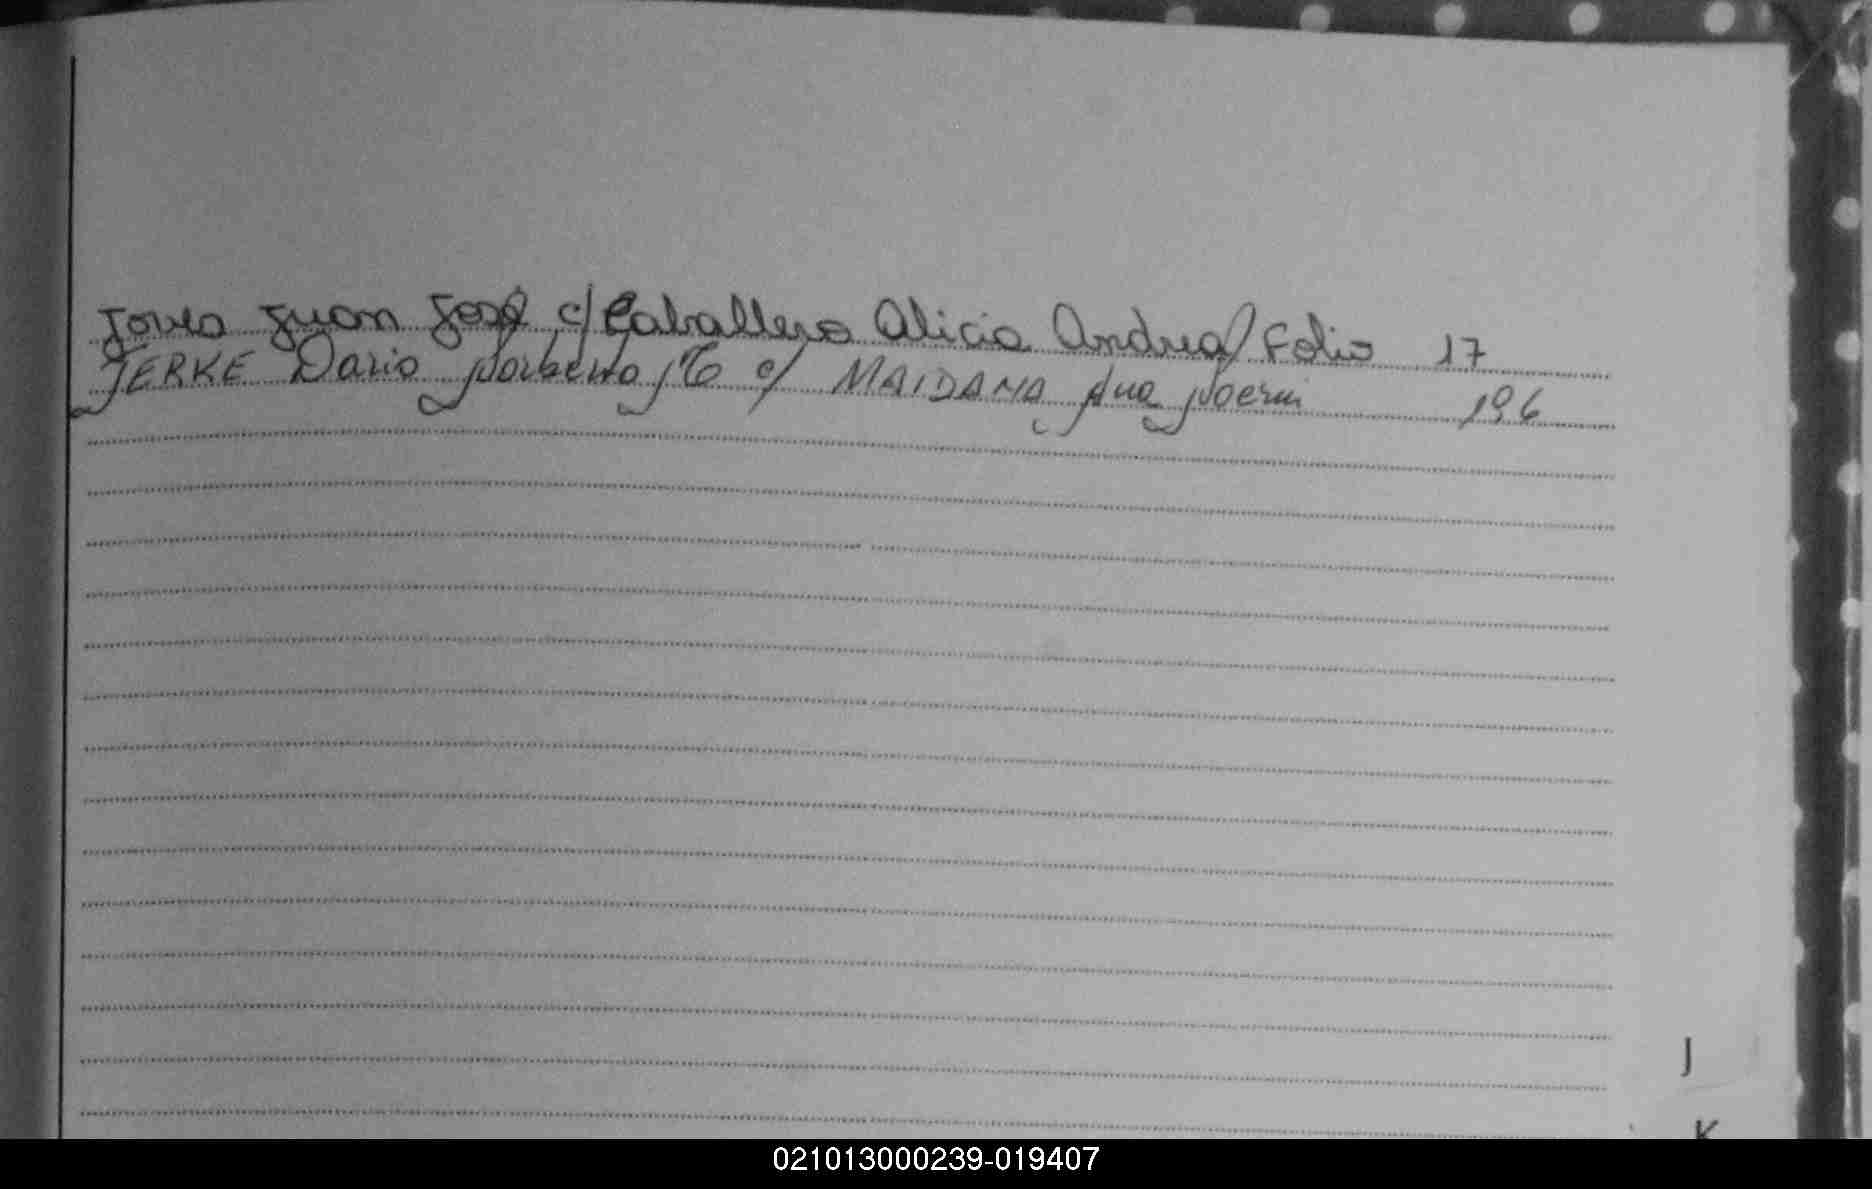 Juan José c/ Caballero Alicia Andrea / Folio 17
JERKE Dario Norberto c/ MAIDANA Ana Noemi 196
J
K
021013000239-019407